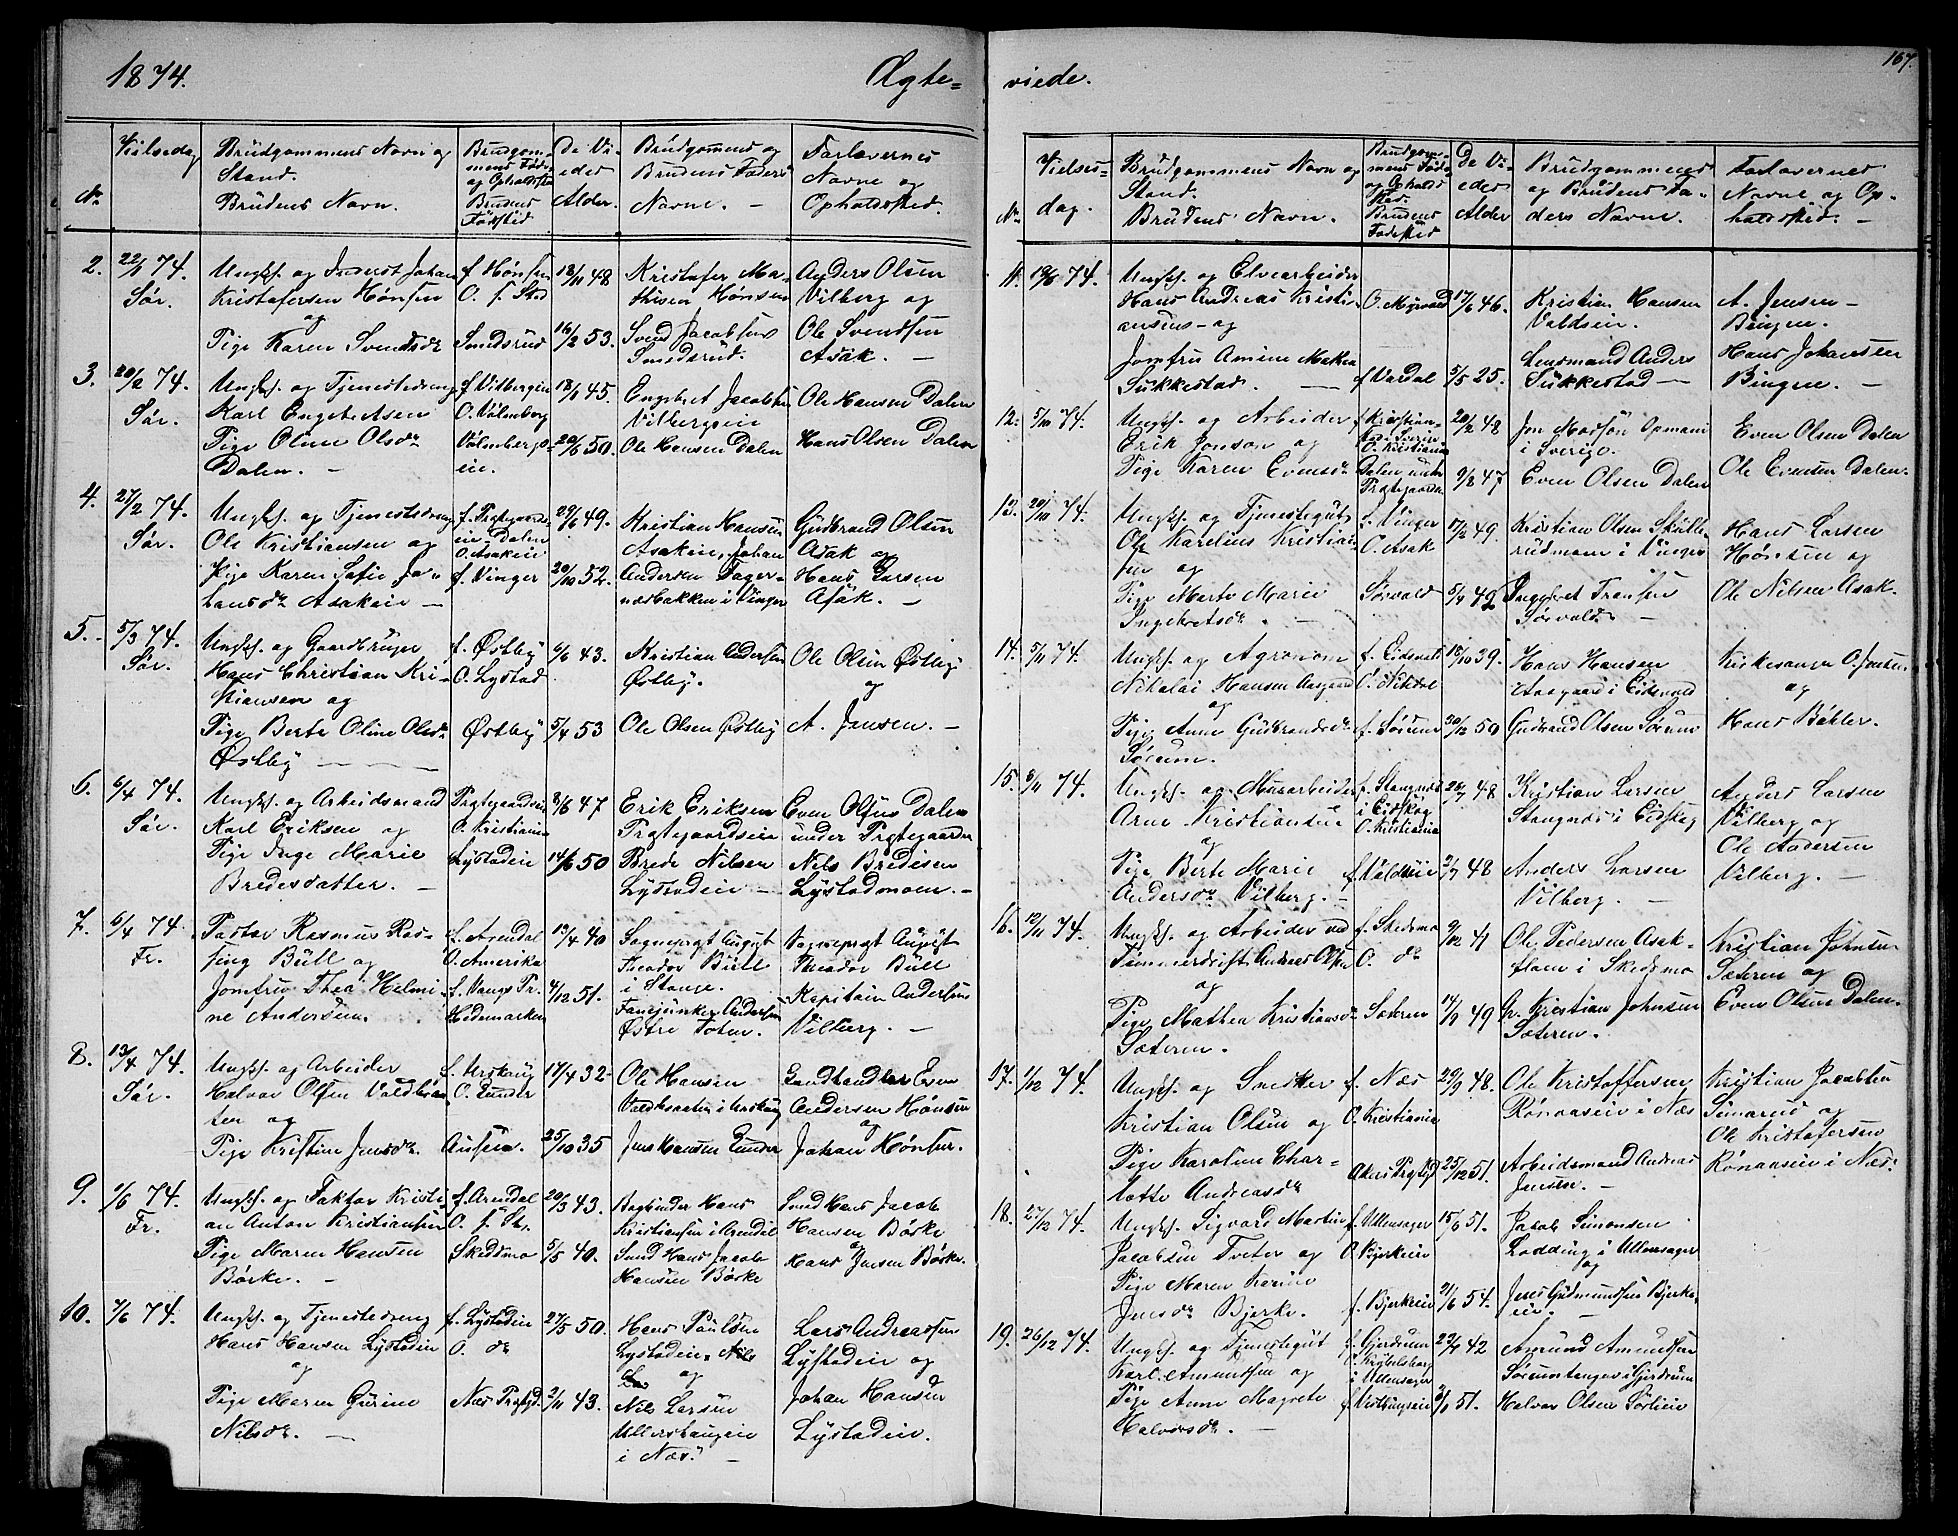 1874.
Ægte=
viede.
167.
No
Vielsedag
Brudgommens Navn og
Stand.
Brudens Navn.
Brudgom-
mens Føde
og Opholdssted
Brudens
Fødested
De Vi-
edes
Alder.
Brudgommens og
Brudens Faders
Navne. -
Forlovernes
Navne og
Opholdssted.
2.
22/1 74.
Sør.
Ungk. og Inderst Johan
Kristofersen Hønsen
og
Pige Karen Svendsdr
f. Hønsen
O. f. Sted
Smedsrud
18/11 48
16/2 53.
Kristofer Ma-
thisen Hønsen
Svend Jacobsen
Smedsrud.
Anders Olsen
Vilberg og
Ole Svendsen
Asak. -
3.
20/2 74.
Sør.
Ungk. og Tjenestedreng
Karl Engebretsen
Pige Oline Olsdr
Dalen. -
f. Vilbergeie
O. Valnberg
Valnbergs-
eie.
18/1 45.
20/6 50.
Engebret Jacobsen
Vilbergeie
Ole Hansen Dalen
Ole Hansen Dalen
Hans Olsen Dalen
4.
27/2 74.
Sør.
Ungk. og Tjenestedreng
Ole Kristiansen og
Pige Karen Sofie Jo-
hansdr Asakeie -
f. Prgtegaards-
eie Dalen
O. Asakeie
f. Vinger
29/6 49.
20/10 52.
Kristian Hansen
Asakeie, Johan
Andersen Tager-
næsbakken i Vinger
Gudbrand Olsen
Asak og
Hans Larsen
Asak. -
5.
5/3 74.
Sør.
Ungk. og Gaardbruger
Hans Christian Kri-
stiansen og
Pige Berte Oline Olsdr
Østby
f. Østby
O. Lystad
Østby
6/6 43.
5/4 53
Kristian Andersen
Østby.
Ole Olsen Østby
Ole Olsen Østby
og
A. Jensen. -
6.
6/4 74.
Sør.
Ungk. og Arbeidsmand
Karl Eriksen og
Pige Inge Marie
Bredesdatter. -
Prgtegaardseie
O. Kristiania
Lystadeie
8/6 47
14/6 50
Erik Eriksen
Prgtegaardseie
Brede Nilsen
Lystadeie -
Even Olsen Dalen
under Prgtegaarden
Nils Bredesen
Lystadmoen. -
7.
6/4 74.
Fr.
Pastor Rasmus Ras-
sing Bull og
Jomfru Thea Helmi-
ne Andersen.
f. Arendal
O. Amerika
f. Vangs Pr.
Hedemarken
13/4 40
4/12 51.
Sognepræst August
Theodor Bull
i Stange.
Fanejunker Andersen
Østre Toten.
Sognepræst August
Theodor Bull
Kapitain Andersen
Vilberg. -
8.
13/4 74.
Sør.
Ungk. og Arbeider
Halvor Olsen Valdbraa-
ten og
Pige Kristine Jensdr.
f. Urskoug
O. Funder
17/4 32
25/10 35
Ole Hansen
Valdbraaten i Urskoug
Jens Hansen Funder
Landhandler Even
Andersen Hønsen
og
Johan Hønsen.
9.
1/6 74.
Fr.
Ungk. og Faktor Kristi-
an Anton Kristiansen
Pige Maren Hansen
Børke. -
f. Arendal
O. f. St.
Skedsmo
20/3 43.
5/5 40.
Bogbinder Hans
Kristiansen i Arendal
Hans Jacob
Hansen Børke
Hans Jacob
Hansen Børke
Hans Jensen Børke.
10.
7/6 74.
Ungk. og Tjenestedreng
Hans Hansen Lystadeie
og
Pige Maren Gurine
Nilsdr. -
f. Lystadeie
O. dr
Næs Prgtgd.
27/5 50.
2/11 43.
Hans Paulsen
Lystadeie. Nils
og
Nils Larsen
Ullershougeie
i Næs. -
Lars Andreassen
Lystadeie og
Johan Hansen
Lystadeie.
No
Vielses-
dag.
Brudgommens Navn og
Stand.
Brudens Navn.
Brudgom-
mens Føde
og Opholds
sted.
Brudens
Fødested
De Vi-
edes
Alder
Brudgommens
og Brudens Fa-
ders Navne.
Forlovernes
Navne og Op-
holdssted. -
11.
19/6 74.
Ungk. og Elvearbeider
Hans Andreas Kristi-
ansen og
Jomfru Amine Mathea
Sukkestad. -
O. Myrvold
f. Vardal
17/6 46.
5/5 25.
Kristian Hansen
Valdseie.
Lensmand Anders
Sukkestad -
A. Jensen -
Bingen.
Hans Johansen
Bingen. -
12.
5/10 74.
Ungk. og Arbeider
Erik Jonson og
Pige Karen Evensdr
O. Kristiania
Dalen under
Prgtegaarden
20/2 48
9/8 47
i Sverige.
Even Olsen Dalen
Even Olsen Dalen
Ole Evensen Dalen.
13.
20/10 74.
Ungk. og Tjenestegut
Ole Karelius Kristian-
sen og
Pige Marte Marie
Ingebretsdr. -
f. Vinger
O. Asak
Sørvald
17/2 49.
5/4 49
Kristian Olsen Skulle-
rudmoen i Vinger
Ingebret Fransen
Sørvald -
Hans Larsen
Hønsen og
Ole Nilsen Asak.
14.
5/11 74.
Ungk. og Agronom
Nikolai Hansen Aasgaard
og
Pige Anne Gudbrandsdr
Sørum.
f. Eidsvold
O. Nitedal
f. Sørum
18/10 39.
30/12 50
Hans Hansen
Aasgaard i Eidsvold
Gudbrand Olsen Sørum
Kirkesanger O. Jensen
og
Hans Bøhler.
15.
6/11 74.
Ungk. og Murarbeider
Arne Kristiansen
og
Pige Berte Marie
Andersdr Vilberg. -
f. Stangnæs
i Eidskog
O. Kristiania
f. Valdseie
28/7 48
2/7 48
Kristian Larsen
Stangnæs i Eidskog
Anders Larsen
Vilberg. -
Anders Larsen
Vilberg og
Ole Andersen
Vilberg. -
16.
12/11 74.
Ungk. og Arbeider ved
Tømmerdrift Andreas Olsen
og
Pige Mathea Kristiansdr
Sæteren.
f. Skedsmo
O. dr
Sæteren
9/12 41
14/9 49
Ole Pedersen Asak-
floen i Skedsmo
Kristian Johnsen
Sæteren.
Kristian Johnsen
Sæteren og
Even Olsen Dalen.
17.
1/12 74.
Ungk. og Snekker
Kristian Olsen og
Pige Karoline Char-
lotte Andreasdr
f. Næs
O. Kristiania
Akers Prgtgd
29/9 48.
25/12 51.
Ole Kristoffersen
Rønaaseie i Næs
Arbeidsmand Andreas
Jensen. -
Kristian Jacobsen
Simarud og
Ole Kristofersen
Rønaaseie i Næs.
18.
27/12 74.
Ungk. Sigvard Martin
Jacobsen Tveter og
Pige Maren Karine
Jensdr Bjerke.
f. Ullensager
O. Bjerkeie
f. Bjerkeie
15/6 51.
21/6 54.
Jacob Simonsen
Lodding i Ullensager
og
Jens Gudmundsen Bjerke-
eie.
19.
26/12 74.
Ungk. og Tjenestegut
Karl Amundsen og
Pige Anne Magrete
Halvorsdr. -
f. Gjerdrum
i Ullensager
23/4 42
3/1 51.
Amund Amundsen
i Gjerdrum
Halvor Olsen Sørlieie